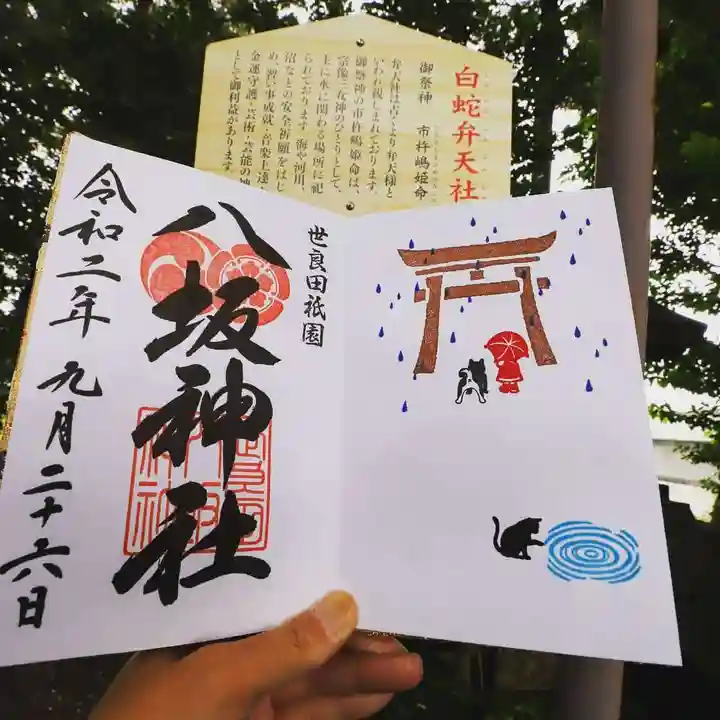 白蛇弁天社
御祭神 市杵嶋姫命
弁天社は古くより弁天様と
いわれ親しまれております。
御祭神の市杵嶋姫命は、
宗像三女神のひとりとして、
主に水に関わる場所に祀
られております。海や河川、
沼などの安全祈願をはじ
め、習い事成就・音楽上達・
金運守護・芸術・芸能の神
として御利益があります。
世良田祇園
八坂神社
令和二年 九月二十六日